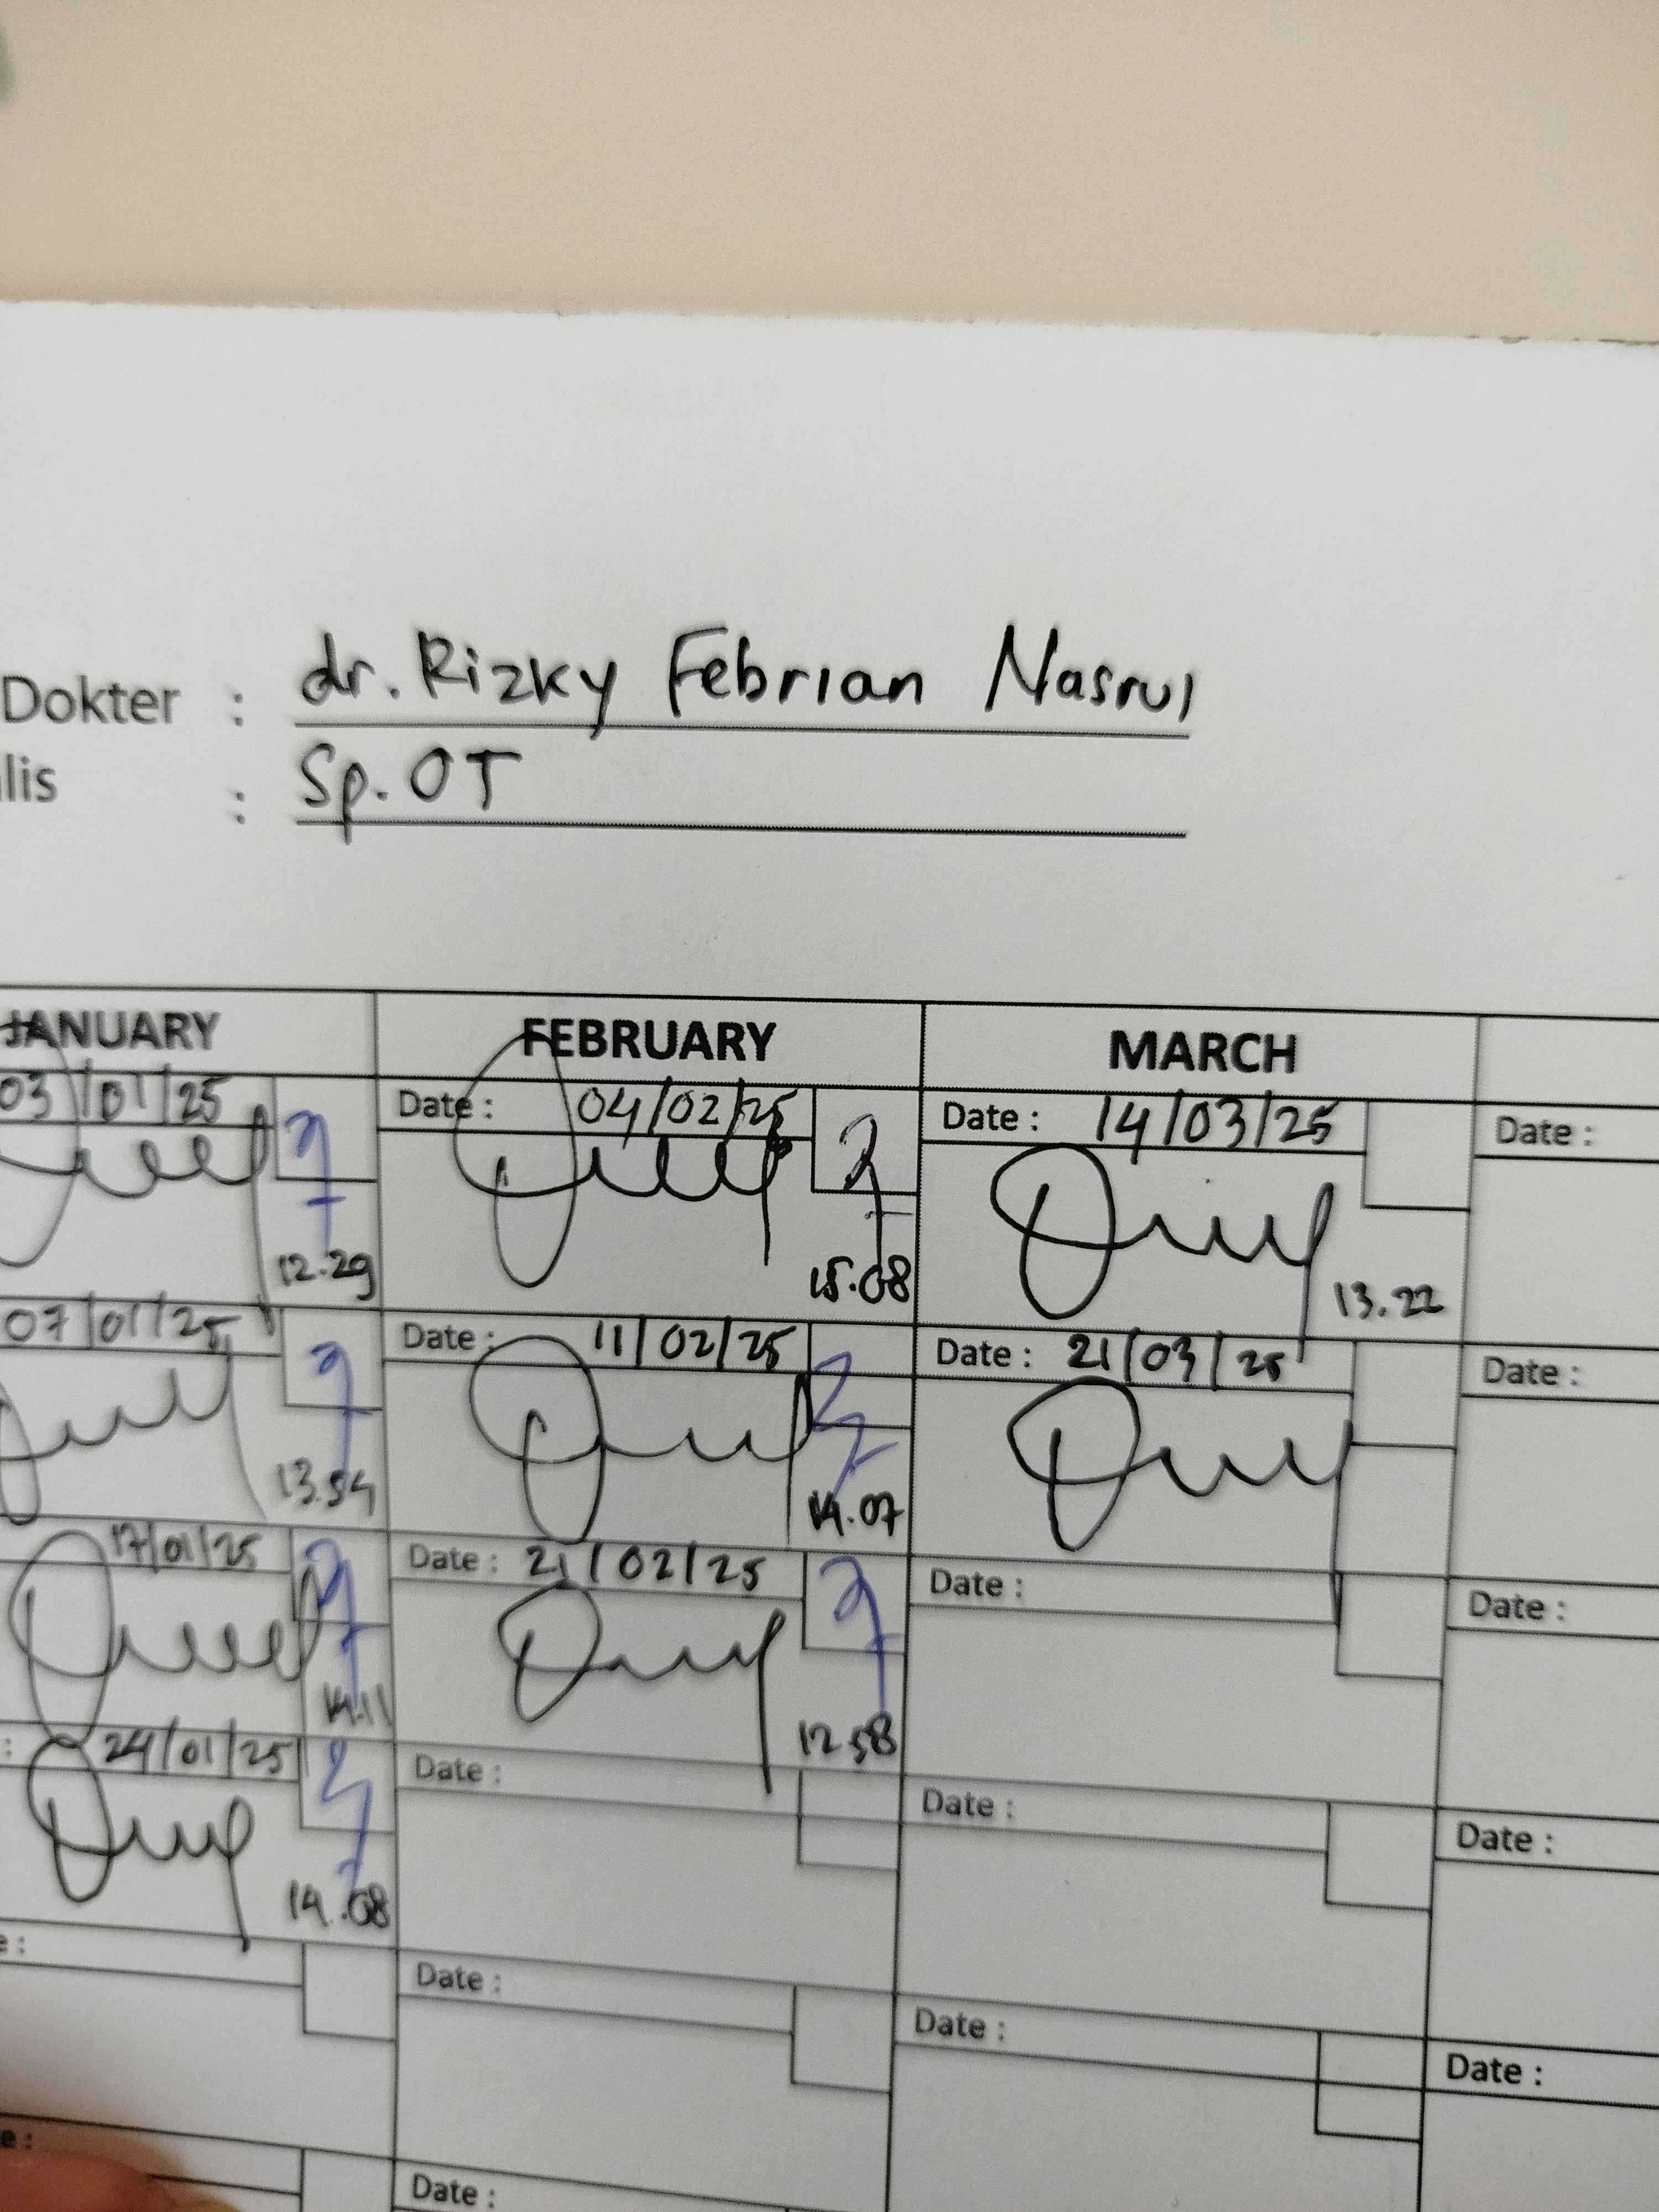 Dokter : dr. Rizky Febrian Nasrul
lis : Sp.OT
JANUARY FEBRUARY MARCH
03/01/25 Date : 04/02/25 Date : 14/03/25 Date :
12.29 15.08 13.22
07/01/25 Date : 11/02/25 Date : 21/03/25 Date :
13.54 14.07
17/01/25 Date : 21/02/25 Date : Date :
14.11 12.58
: 24/01/25 Date : Date : Date :
14.08
e : Date : Date : Date :
e : Date :